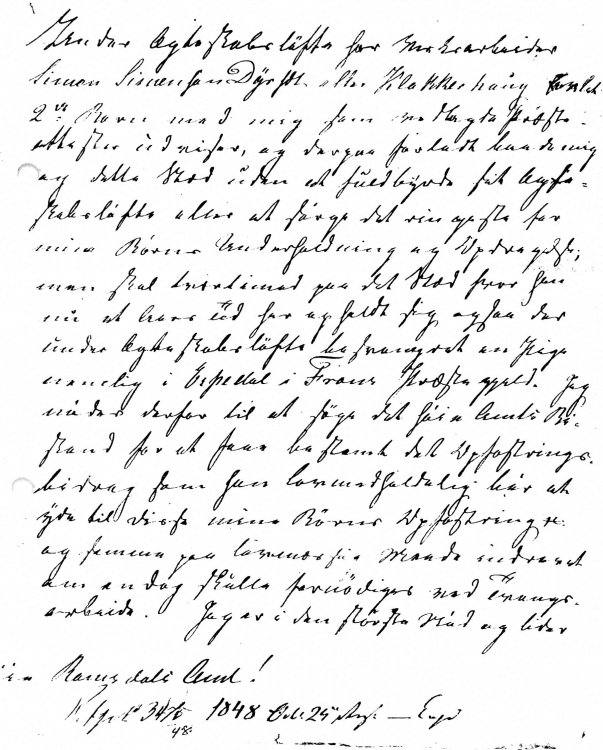 Under Ægteskabsløfte har Verksarbeider
Simon Simensen Dyrhdt eller Klokkerhaug
2de Børn med mig som vedlagde Præste-
attester udviser, og derpaa forladt baade mig
og dette Sted uden at fuldbyrde sit Ægte-
skabsløfte eller at sørge det ringeste for
mine Børns Underholdning og Opdragelse,
men skal tvertimod paa det Sted hvor han
nu et Aars Tid har opholdt sig ogsaa der
under Ægteskabsløfte besvangret en Pige
nemlig i Espedal i Frons Præstegjeld. Jeg
nødes derfor til at søge det høie Amts Bi-
stand for at faae bestemt det Opfostrings-
bidrag som han lovmedholdelig bør at
yde til disse mine Børns Opfostring
og samme paa lovmæssig Maade inddrevet
om endog skulle fornødiges ved Tvangs-
arbeide. Jeg er i den største Nød og lider
Romsdals Amt!
1848 25